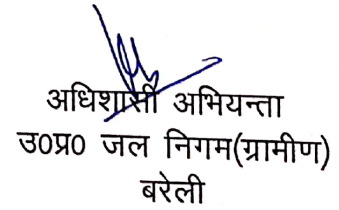 अधिशासी अभियन्ता
उ०प्र० जल निगम(ग्रामीण)
बरेली